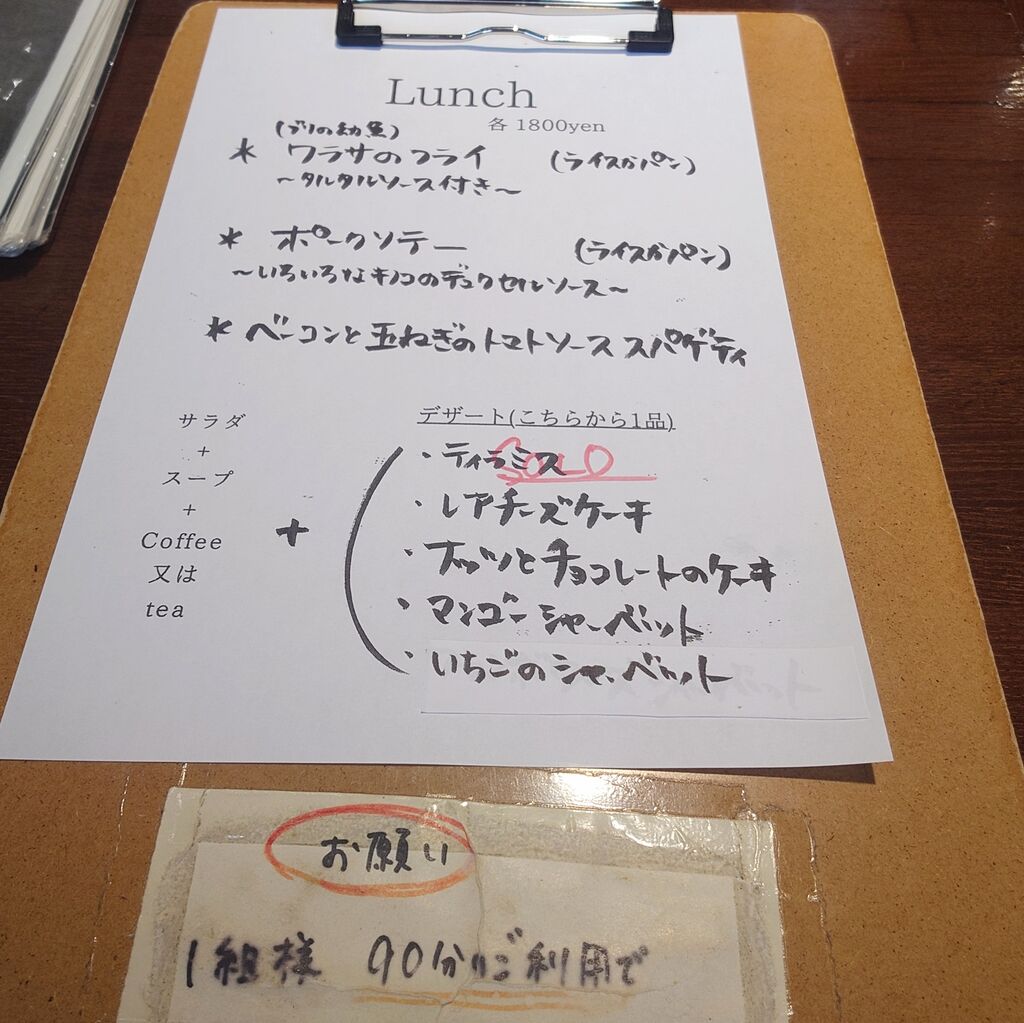 Lunch
各 1800yen
(ブリの幼魚)
* ワラサのフライ (ライスかパン)
〜タルタルソース付き〜
* ポークソテー (ライスかパン)
〜いろいろなキノコのデュクセルソース〜
* ベーコンと玉ねぎのトマトソース スパゲティ
サラダ
+
スープ
+
Coffee
又は
tea
+
デザート(こちらから1品)
・ティラミス SOLD
・レアチーズケーキ
・ナッツとチョコレートのケーキ
・マンゴーシャーベット
・いちごのシャーベット
お願い
1組様 90分りご利用で